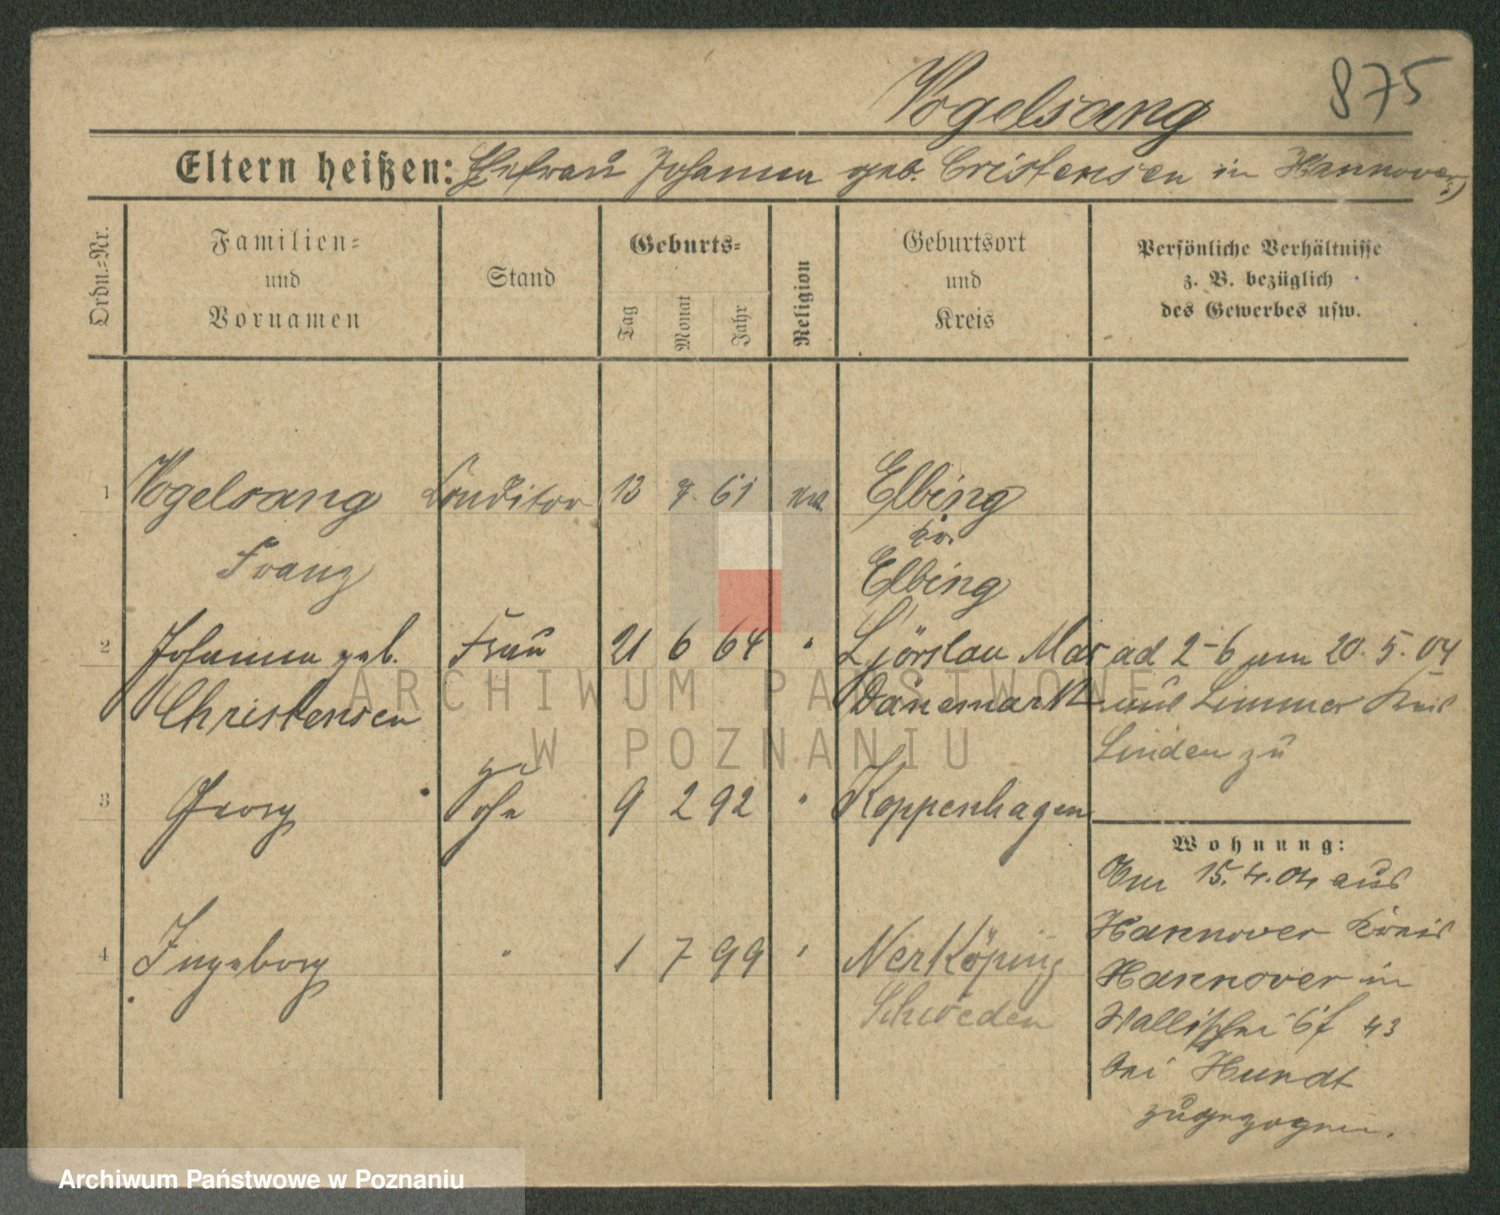 Vogelsang 875
Eltern heißen: Ehefrau Johanna geb. Cristensen in Hannover
Ordn.=Nr.
Familien=
und
Vornamen
Stand
Geburts=
Tag
Monat
Jahr
Religion
Geburtsort
und
Kreis
Persönliche Verhältnisse
z. B. bezüglich
des Gewerbes usw.
1 Vogelsang Conditor 13 7. 61 Elbing
Franz
Kr.
Elbing
2 Johanna geb. Frau 21 6 64 " Mar
Christensen Dänemark
ad 2-6 am 20.5.04
aus Limmer Kreis
Linden zu
3 Georg Sohn 9 2 92 " Koppenhagen
4 Ingeborg " 1 7 99 " Nerköping
Schweden
Wohnung:
Am 15.4.04 aus
Hannover Kreis
Hannover in
Wallischei 43
bei Hundt
zugezogen.
ARCHIWUM PAŃSTWOWE
W POZNANIU
Archiwum Państwowe w Poznaniu